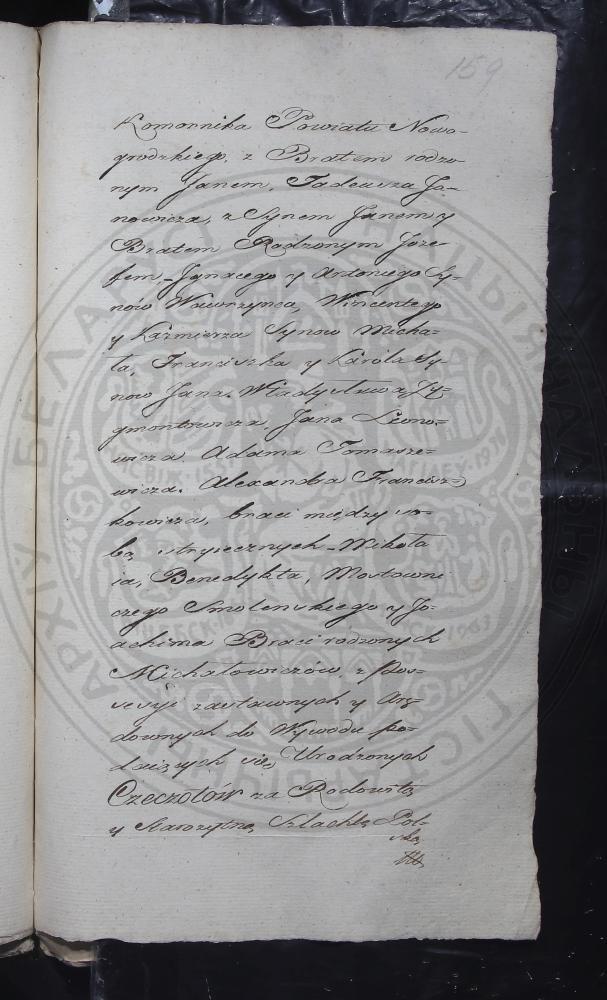 159
Komornika Powiatu Nowo-
grodzkiego, z Bratem rodzo-
nym Janem, Tadeusza Ja-
nowicza, z Synem Janem y
Bratem Rodzonym Józe-
fem, Jgnacego y Antoniego Sy-
nów Wawrzynca, Wincentego
y Kazmierza Synow Micha-
ła, Franciszka y Karóla Sy-
now Jana. Władysława Zy-
gmontowicza, Jana Leono-
wicza Adama Tomasze-
wicza. Alexandra Francisz-
kowicza, braci między so-
bą stryiecznych Mikoła
ia, Benedykta, Mostowni-
czego Smolenskiego y Jo-
achima Braci rodzonych
Michałowiczów, z Pos-
sesyi zastawnych y Arę-
downych do Wywodu po-
daiących się, Urodzonych
Czeczotów za Rodowitą
y Starożytną Szlachtę Pol-
ską